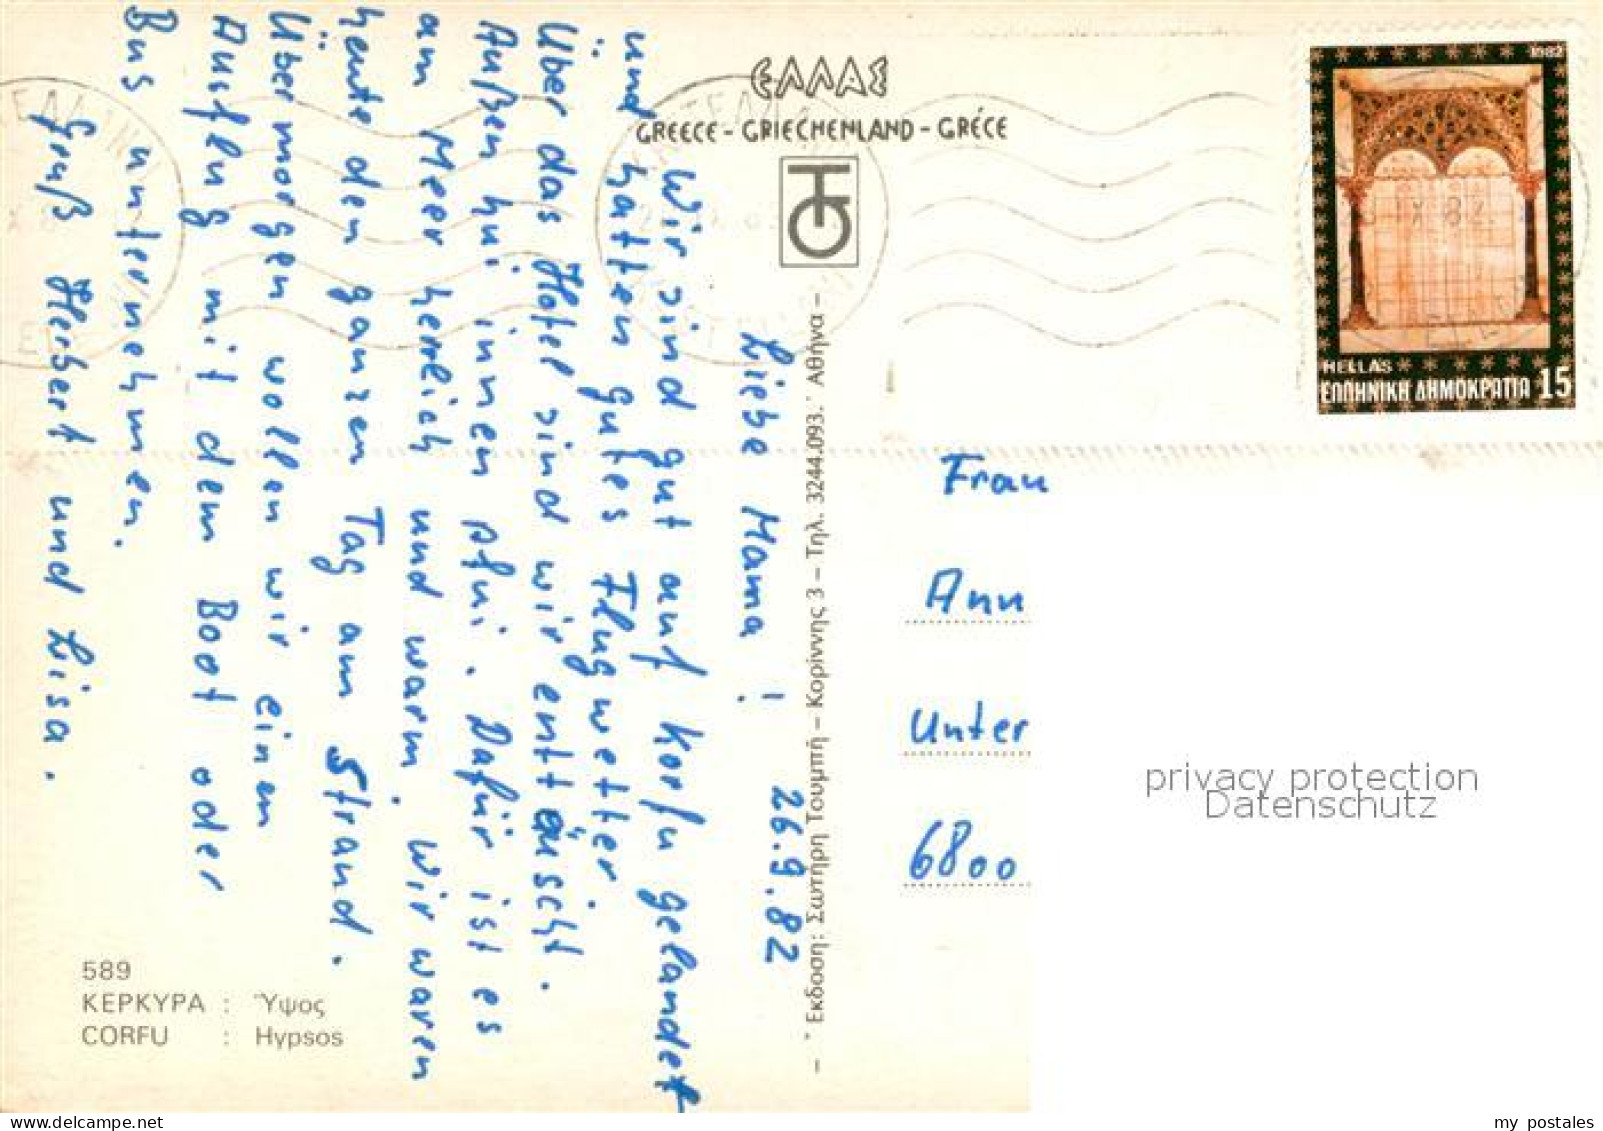 ΕΛΛΑΣ
GREECE - GRIECHENLAND - GRÉCE
1982
HELLAS
ΕΛΛΗΝΙΚΗ ΔΗΜΟΚΡΑΤΙΑ 15
IX 82
26.9.82
Liebe Mama!
Wir sind gut auf Korfu gelandet
und hatten gutes Flugwetter.
Über das Hotel sind wir enttäuscht.
Außen hui innen pfui. Dafür ist es
am Meer herrlich und warm. Wir waren
heute den ganzen Tag am Strand.
Übermorgen wollen wir einen
Ausflug mit dem Boot oder
Bus unternehmen.
Gruß Herbert und Lisa.
– Έκδοση: Σωτήρη Τουμπή – Κορίννης 3 – Τηλ. 3244.093. Αθήνα –
Frau
Ann
Unter
6800
privacy protection
Datenschutz
589
ΚΕΡΚΥΡΑ : Ύψος
CORFU : Hypsos
my postales